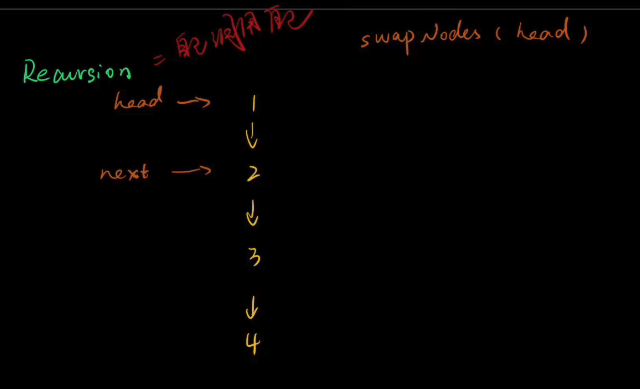 Recursion =
swapNodes (head)
head → 1
↓
next → 2
↓
3
↓
4